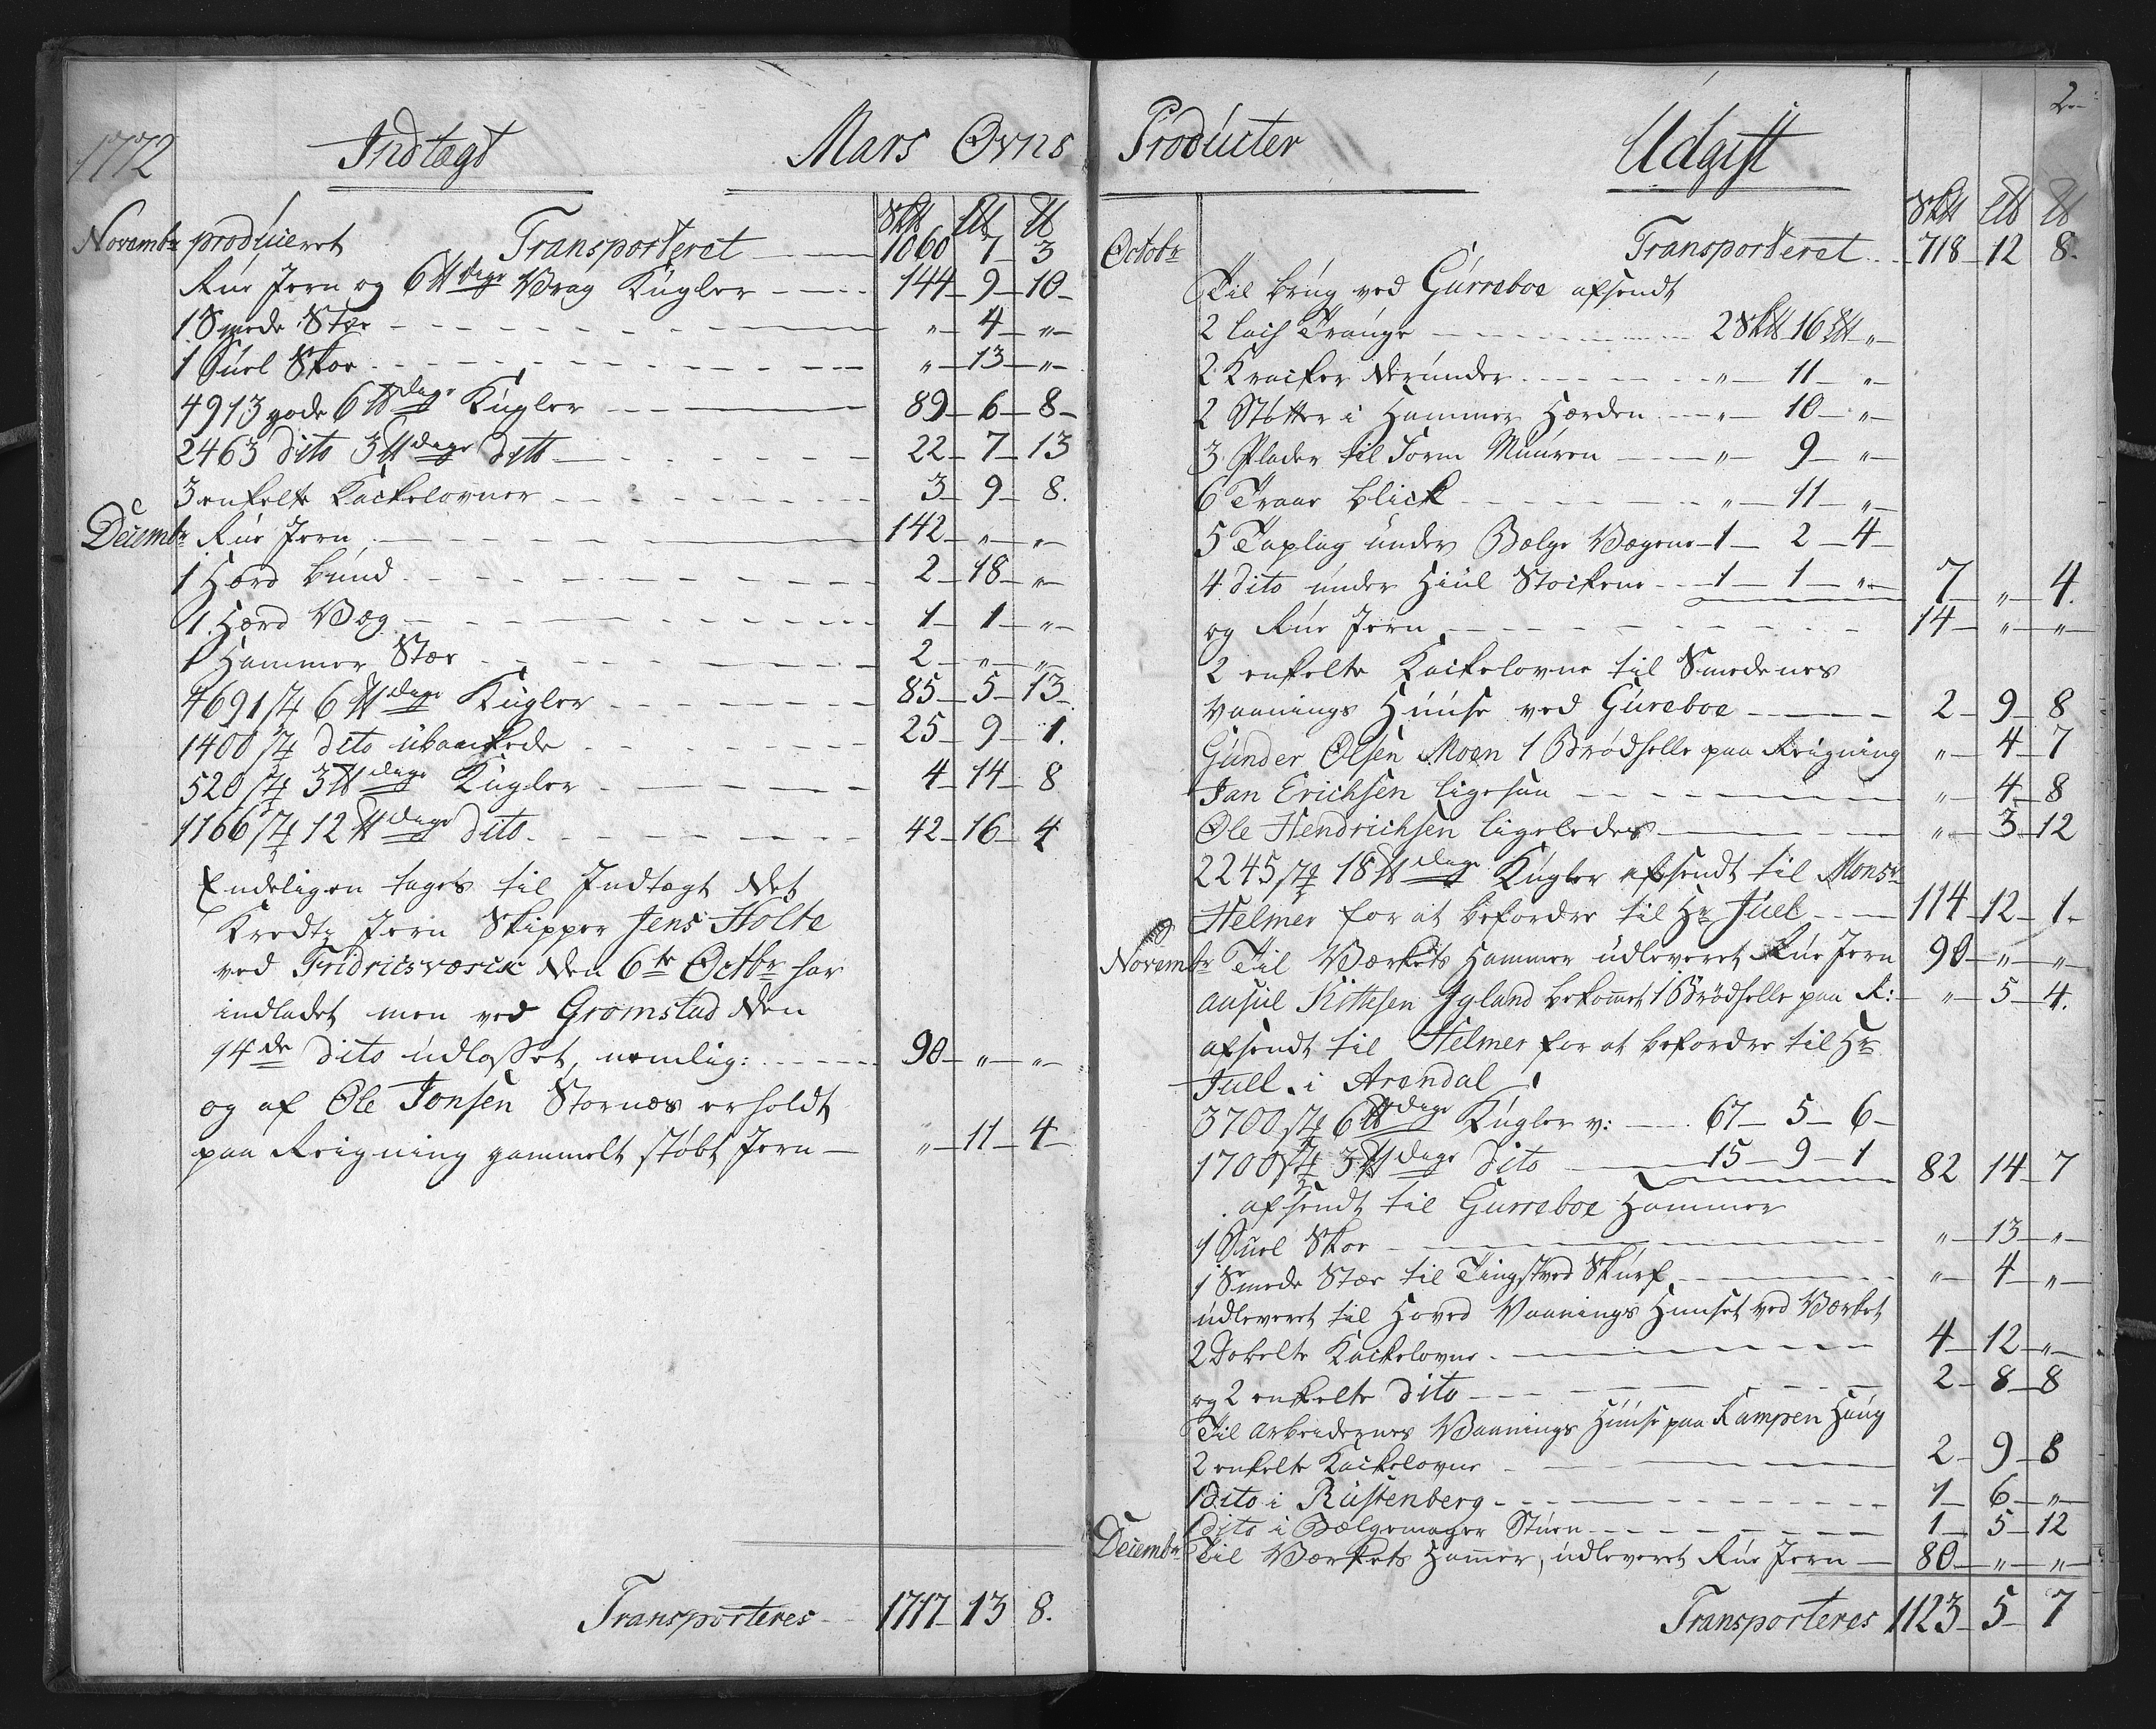 1772 Indtægt Mars Ovns
Sk℔ L℔ ℔
Novembr produceret Transporteret 1060 7 3
Rue Jern og 6 ℔dige Vrag Kugler 144 9 10
1 Smede Stæe „ 4 „
1 Suel Skoe „ 13 „
4913 gode 6 ℔dige Kugler 89 6 8
2463 dito 3 ℔dige ditto 22 7 13
3 enkelte Kackelovner 3 9 8.
Decembr Rue Jern 142 „ „
1 Hærd bund 2 18 „
1 Hærd Væg 1 1 „
1 Hammer Stæe 2 „ „
4691 st 6 ℔dige Kugler 85 5 13
1400 st dito ubankede 25 9 1.
520 st 3 ℔dige Kugler 4 14 8
1166 st 12 ℔dige dito 42 16 4
Endeligen tages til Indtægt det
Jern Skipper Jens Holte
ved Fridricsværck den 6te Octbr har
indladet men ved Gromstad den
14de dito udlosset, nemlig: 90 „ „
og af Ole Jonsen Stornæs erholdt
paa Reigning gammelt støbt Jern „ 11 4
Transporteres 1717 13 8.
2
Producter Udgift
Sk℔ L℔ ℔
Octobr „ Transporteret 718 12 8.
Til brug ved Gurreboe afsendt
2 Trange 2 Sk℔ 16 L℔ „
2 Kracker derunder „ 11 „
2 Støtter i Hammer Hærden „ 10 „
3 Plader til Form Muuren „ 9 „
6 Traae blick „ 11 „
5 Taplag under Bælge Vægene 1 2 4
4 dito under Hiul Stockene 1 1 „ 7 „ 4.
og Rue Jern 14 „ „
2 enkelte Kackelovne til Smedenes
Vaanings Huuse ved Gureboe 2 9 8
Gunder Olsen Moen 1 Brødhelle paa Reigning „ 4 7
Jan Erichsen ligesaa „ 4 8
Ole Hendrichsen ligeledes „ 3 12
2245 st 18 ℔dige Kugler afsendt til Monsr
Helmer for at befordre til Hr Juel 114 12 1
Novembr Til Værkets Hammer udleveret Rue Jern 90 „ „
Ausul Kittesen Igland bekomet 1 Brødhelle paa R: „ 5 4.
afsendt til Helmer for at befordre til Hr
Juell i Arendal
3700 st 6 ℔dige Kugler v: 67 5 6
1700 st 3 ℔dige dito 15 9 1 82 14 7
afsendt til Gurreboe Hammer
1 Suel Skoe „ 13 „
1 Smede Stæe til Tingstved „ 4 „
udleveret til Hoved Vaanings Huuset ved Værket
2 Dobelte Kackelovne 4 12 „
og 2 enkelte dito 2 8 8
Til Arbeidernes Vaanings Huuse paa Kampen Haug
2 enkelte Kackelovne 2 9 8
1 dito i Rustenberg 1 6 „
1 dito i Bælgemager Stuen 1 5 12
Decembr Til Værkets Hamer, udleveret Rue Jern 80 „ „
Transporteres 1123 5 7